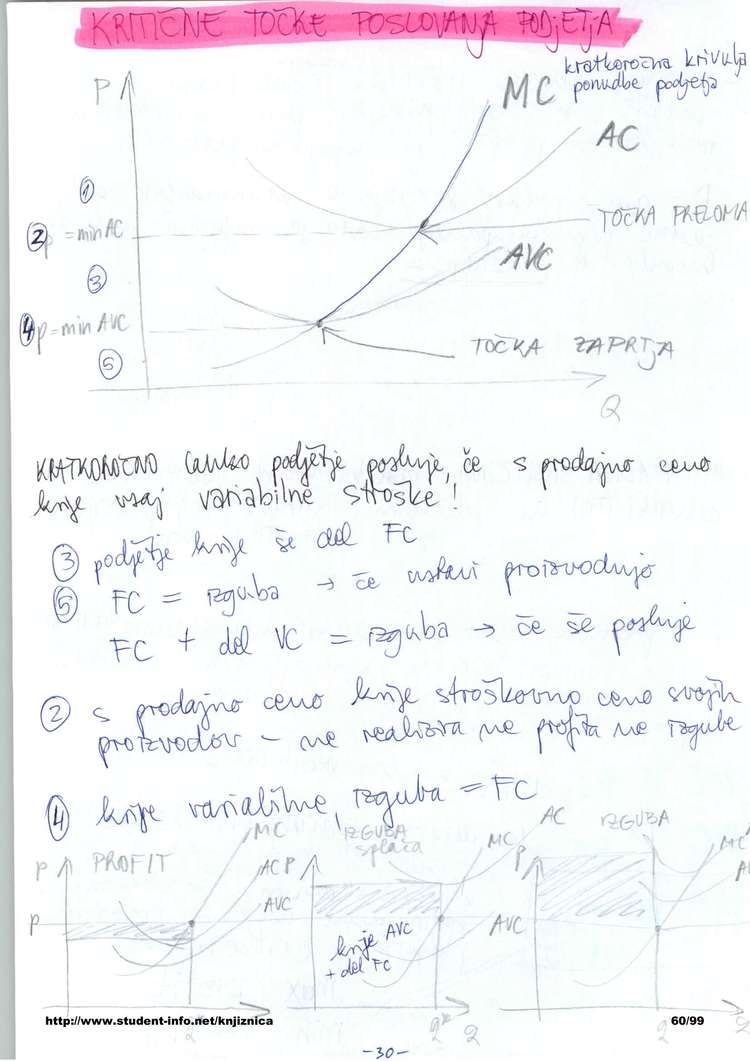 KRITIČNE TOČKE POSLOVANJA PODJETJA
kratkoročna krivulja
ponudbe podjetja
P
MC
AC
①
TOČKA PRELOMA
② p = min AC
AVC
③
④ p = min AVC
TOČKA ZAPRTJA
⑤
Q
KRATKOROČNO lahko podjetje posluje, če s prodajno ceno
krije vsaj variabilne stroške!
③ podjetje krije še del FC
⑤ FC = izguba → če ustavi proizvodnjo
FC + del VC = izguba → če še posluje
② s prodajno ceno krije stroškovno ceno svojih
proizvodov – ne realizira ne profita ne izgube
④ krije variabilne, izguba = FC
P PROFIT MC
AC
AVC
P
P IZGUBA
splača
MC
AC
AVC
krije AVC
+ del FC
q* Q
P IZGUBA
MC
http://www.student-info.net/knjiznica
60/99
-30-